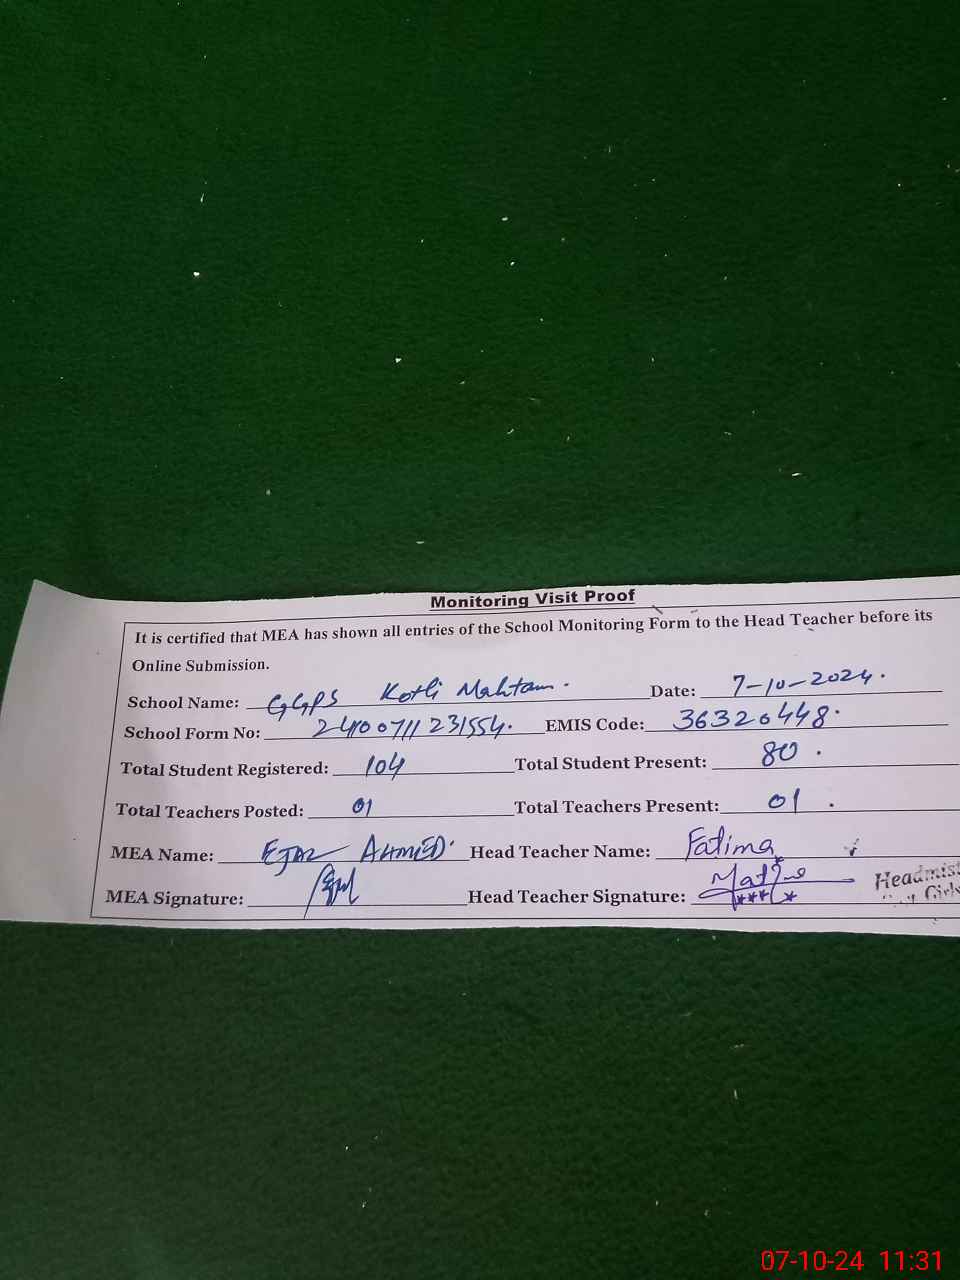 Monitoring Visit Proof
It is certified that MEA has shown all entries of the School Monitoring Form to the Head Teacher before its
Online Submission.
School Name: GGPS Kotli Mahtam. Date: 7-10-2024.
School Form No: 24100711231554. EMIS Code: 36320448.
Total Student Registered: 104 Total Student Present: 80.
Total Teachers Posted: 01 Total Teachers Present: 01.
MEA Name: EJAZ AHMED. Head Teacher Name: Fatima
MEA Signature: Head Teacher Signature:
Headmist
Girls
07-10-24 11:31